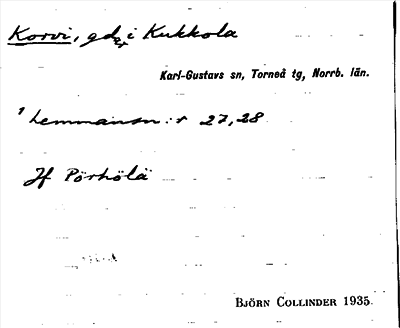 Korvi, gdar i Kukkola
Karl-Gustavs sn, Torneå tg, Norrb. län.
1 Hemmansn:r 27, 28
Jf Pörhölä
BJÖRN COLLINDER 1935